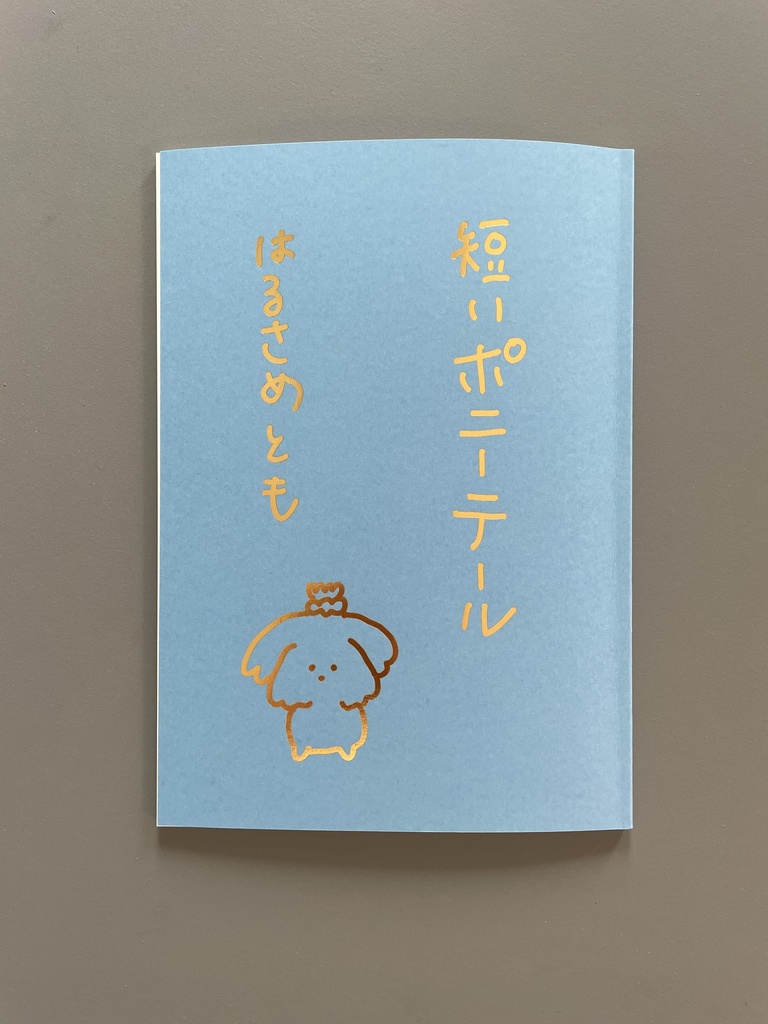 短いポニーテール
はるさめとも